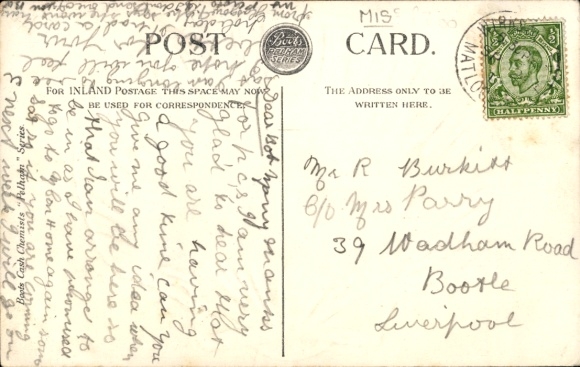 MIS
POST CARD.
Boots
PELHAM
SERIES
MATLO
HALFPENNY
FOR INLAND POSTAGE THIS SPACE MAY NOW
BE USED FOR CORRESPONDENCE.
THE ADDRESS ONLY TO BE
WRITTEN HERE.
Mr R Burkitt
C/o Mrs Parry
39 Wadham Road
Bootle
Liverpool
Dear Boy many thanks
for p.c. I am very
glad to hear that
you are having
a good time can you
give me any idea when
you will be here so
that I can arrange to
be in as I have promised
to go to home again soon
so if you are coming
next week I will go on
Boots Cash Chemists "Pelham" Series.